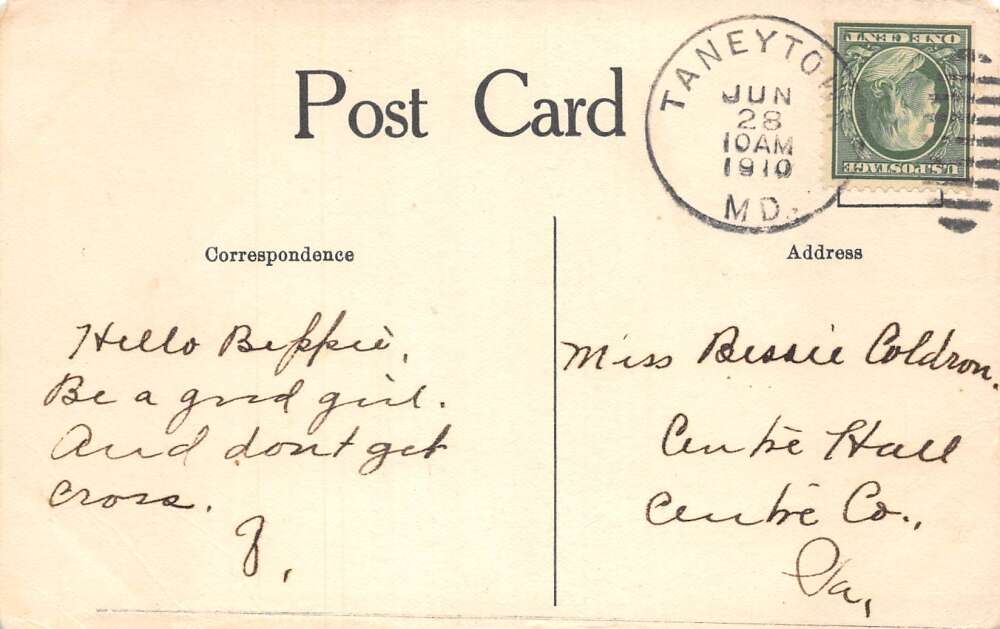 Post Card
TANEYTOW
JUN
28
10AM
1910
MD.
ONE CENT
U.S. POSTAGE
Correspondence
Address
Hello Beppie,
Be a good girl.
And dont get
cross.
J,
Miss Bessie Coldron.
Centre Hall
Centre Co.,
Pa,